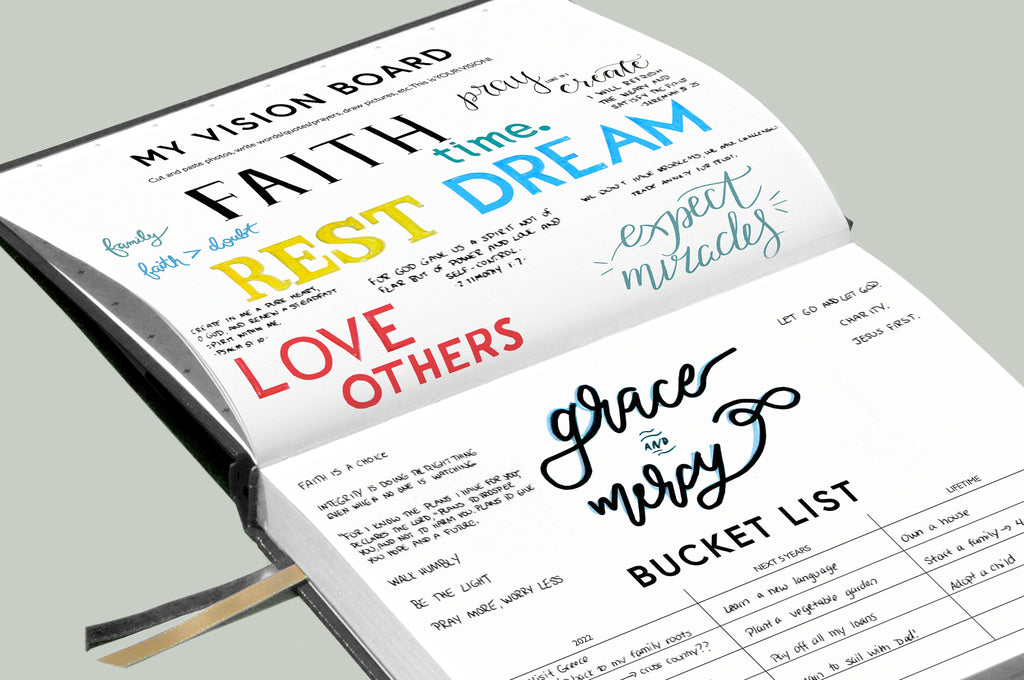 MY VISION BOARD
Cut and paste photos, write words/quotes/prayers, draw pictures, etc. This is YOUR VISION!
FAITH
time.
pray
create
I WILL REFRESH
THE WEARY AND
SATISFY THE FAINT
JEREMIAH 31:25
family
faith > doubt
REST
DREAM
WE DON'T HAVE PROBLEMS, WE HAVE CHALLENGES.
TRADE ANXIETY FOR TRUST.
CREATE IN ME A PURE HEART,
O GOD, AND RENEW A STEADFAST
SPIRIT WITHIN ME.
-PSALM 51:10-
FOR GOD GAVE US A SPIRIT NOT OF
FEAR BUT OF POWER AND LOVE AND
SELF-CONTROL.
-2 TIMOTHY 1:7-
expect
miracles
LOVE
OTHERS
LET GO AND LET GOD.
CHARITY.
JESUS FIRST.
grace
AND
mercy
FAITH IS A CHOICE
INTEGRITY IS DOING THE RIGHT THING
EVEN WHEN NO ONE IS WATCHING
"FOR I KNOW THE PLANS I HAVE FOR YOU,"
DECLARES THE LORD, "PLANS TO PROSPER
YOU, AND NOT TO HARM YOU, PLANS TO GIVE
YOU HOPE AND A FUTURE.
WALK HUMBLY
BE THE LIGHT
PRAY MORE, WORRY LESS
BUCKET LIST
2022
Visit Greece
back to my family roots
→ cross country??
NEXT 5 YEARS
Learn a new language
Plant a vegetable garden
Pay off all my loans
to sail with Dad!
LIFETIME
Own a house
Start a family → 4
Adopt a child